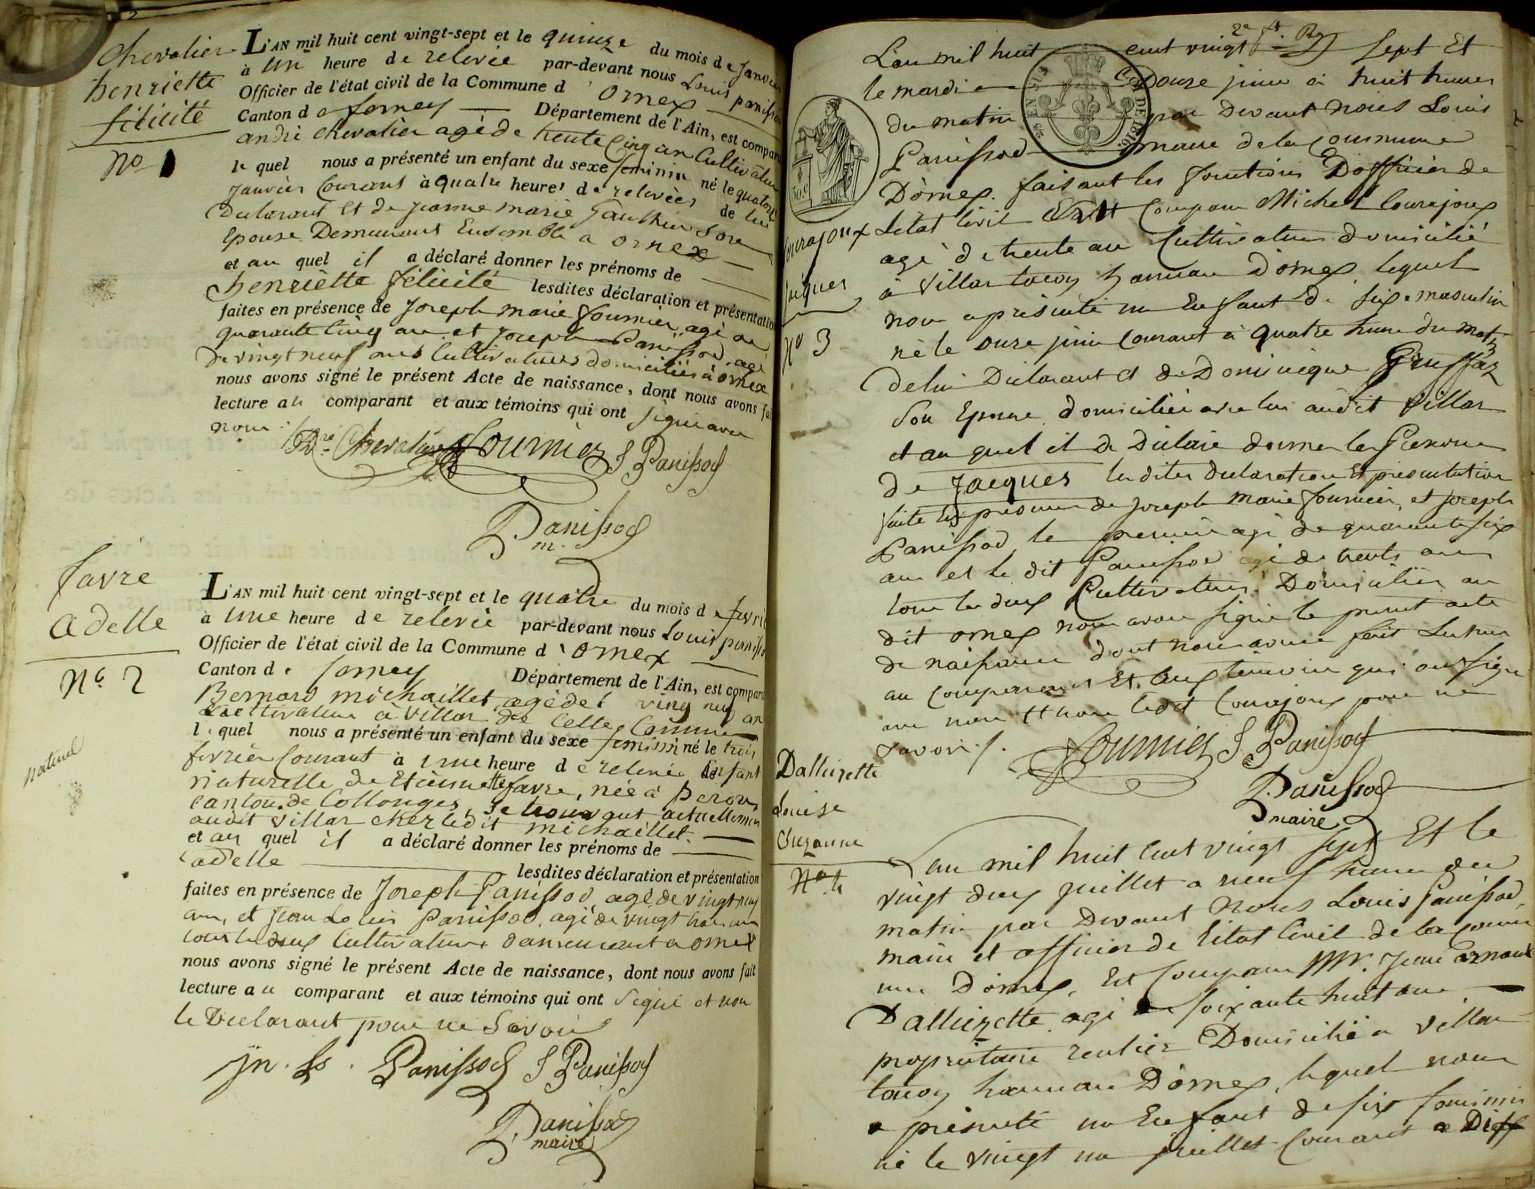 Chevalier
henriette
félicité
No. 1
L'AN mil huit cent vingt-sept et le quinze du mois de Janvier
à Une heure de relevée par-devant nous Louis panissod
Officier de l'état civil de la Commune d'Ornex
Canton de ferney Département de l'Ain, est comparu
andré chevalier agé de trente cinq an Cultivateur
lequel nous a présenté un enfant du sexe feminin né le quatorze
Janvier Courant à quatre heures de relevées de lui
Declarant Et de jeanne marie Gauthier Son
Epouse Demeurant Ensemble a ornex
et au quel il a déclaré donner les prénoms de
henriette félicité lesdites déclaration et présentation
faites en présence de Joseph marie fournier, agé de
quarante cinq an et Joseph Panissod, agé
De vingt neuf ans Cultivateurs domiciliés à ornex
nous avons signé le présent Acte de naissance, dont nous avons fait
lecture au comparant et aux témoins qui ont signé avec
nous
Chevalier Fournier J Panissod
Panissod
m.
favre
adelle
No. 2
naturel
L'AN mil huit cent vingt-sept et le quatre du mois de fevrier
à Une heure de relevée par-devant nous Louis panissod
Officier de l'état civil de la Commune d'Ornex
Canton de ferney Département de l'Ain, est comparu
Bernard michaillet, agé de vingt neuf an
Cultivateur à Villar de Cette Commune
lequel nous a présenté un enfant du sexe feminin né le trois
fevrier Courant à Une heure de relevée Enfant
naturelle de Etiennette favre, née à Peron
canton de Collonges, Se trouvant actuellement
audit Villar chez ledit michaillet
et au quel il a déclaré donner les prénoms de
adelle lesdites déclaration et présentation
faites en présence de Joseph Panissod, agé de vingt neuf
an, et Jean Louis Panissod, agé de vingt
tous les deux Cultivateurs demeurant a ornex
nous avons signé le présent Acte de naissance, dont nous avons fait
lecture au comparant et aux témoins qui ont Signé et non
le Declarant pour ne Savoir
Jn. Ls. Panissod J Panissod
Panissod
maire
Courajoux
Jaques
No 3
L'an mil huit cent vingt Sept Et
le mardi Douze juin à huit heures
du matin par devant nous Louis
Panissod maire de la Commune
D'ornex faisant les fonctions D'officier de
L'etat Civil Est Comparu Michel Courajoux
agé de trente an Cultivateur domicilié
à Villar tacon hameau d'ornex lequel
nous a présenté un Enfant de sexe masculin
né le onze juin Courant à quatre heure du matin
de lui Déclarant et de Dominique Gruffaz
Son Epouse domiciliée avec lui audit Villar
et au quel il a Déclaré donner le Prenom
de Jacques lesdites declaration Et presentation
faite En présence de Joseph Marie fournier, et Joseph
Panissod le premier agé de quarante six
an et le dit Panissod agé de trente ans
tous les deux Cultivateurs Domiciliés au
dit ornex nous avons signé le present acte
de naissance dont nous avons fait lecture
au comparant Et aux témoins qui ont signé
avec nous Et non ledit Courajoux pour ne
savoir./.
Fournier J Panissod
Panissod
maire
Dallinzette
Louise
Suzanne
No. 4
L'an mil huit cent vingt sept Et le
vingt deux juillet a neuf heure du
matin par Devant Nous Louis Panissod,
maire et officier de L'etat Civil de la Commune
D'ornex, Est Comparu Mr. Jean
Dallinzette agé de soixante huit ans
proprietaire rentier Domicilié a Villar
tacon hameau D'ornex, lequel nous
a présenté un Enfant de sex feminin
né le vingt un juillet Courant a Dix